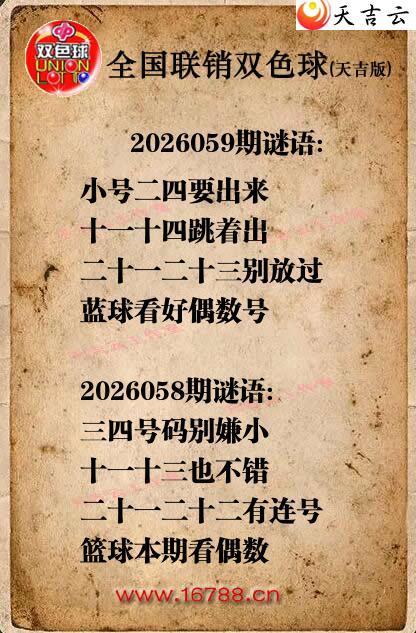 天吉云
双色球
UNION
LOTTO
全国联销双色球(天吉版)
2026059期谜语:
小号二四要出来
十一十四跳着出
二十一二十三别放过
蓝球看好偶数号
2026058期谜语:
三四号码别嫌小
十一十三也不错
二十一二十二有连号
篮球本期看偶数
www.16788.cn